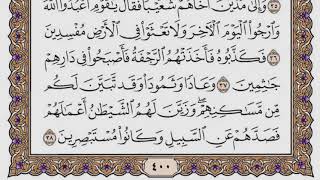 وَإِلَىٰ مَدْيَنَ أَخَاهُمْ شُعَيْبًا فَقَالَ يَٰقَوْمِ ٱعْبُدُوا۟ ٱللَّهَ
وَٱرْجُوا۟ ٱلْيَوْمَ ٱلْءَاخِرَ وَلَا تَعْثَوْا۟ فِى ٱلْأَرْضِ مُفْسِدِينَ
٣٦ فَكَذَّبُوهُ فَأَخَذَتْهُمُ ٱلرَّجْفَةُ فَأَصْبَحُوا۟ فِى دَارِهِمْ
جَٰثِمِينَ ٣٧ وَعَادًا وَثَمُودَا۟ وَقَد تَّبَيَّنَ لَكُم
مِّن مَّسَٰكِنِهِمْ وَزَيَّنَ لَهُمُ ٱلشَّيْطَٰنُ أَعْمَٰلَهُمْ
فَصَدَّهُمْ عَنِ ٱلسَّبِيلِ وَكَانُوا۟ مُسْتَبْصِرِينَ ٣٨
٤٠٠